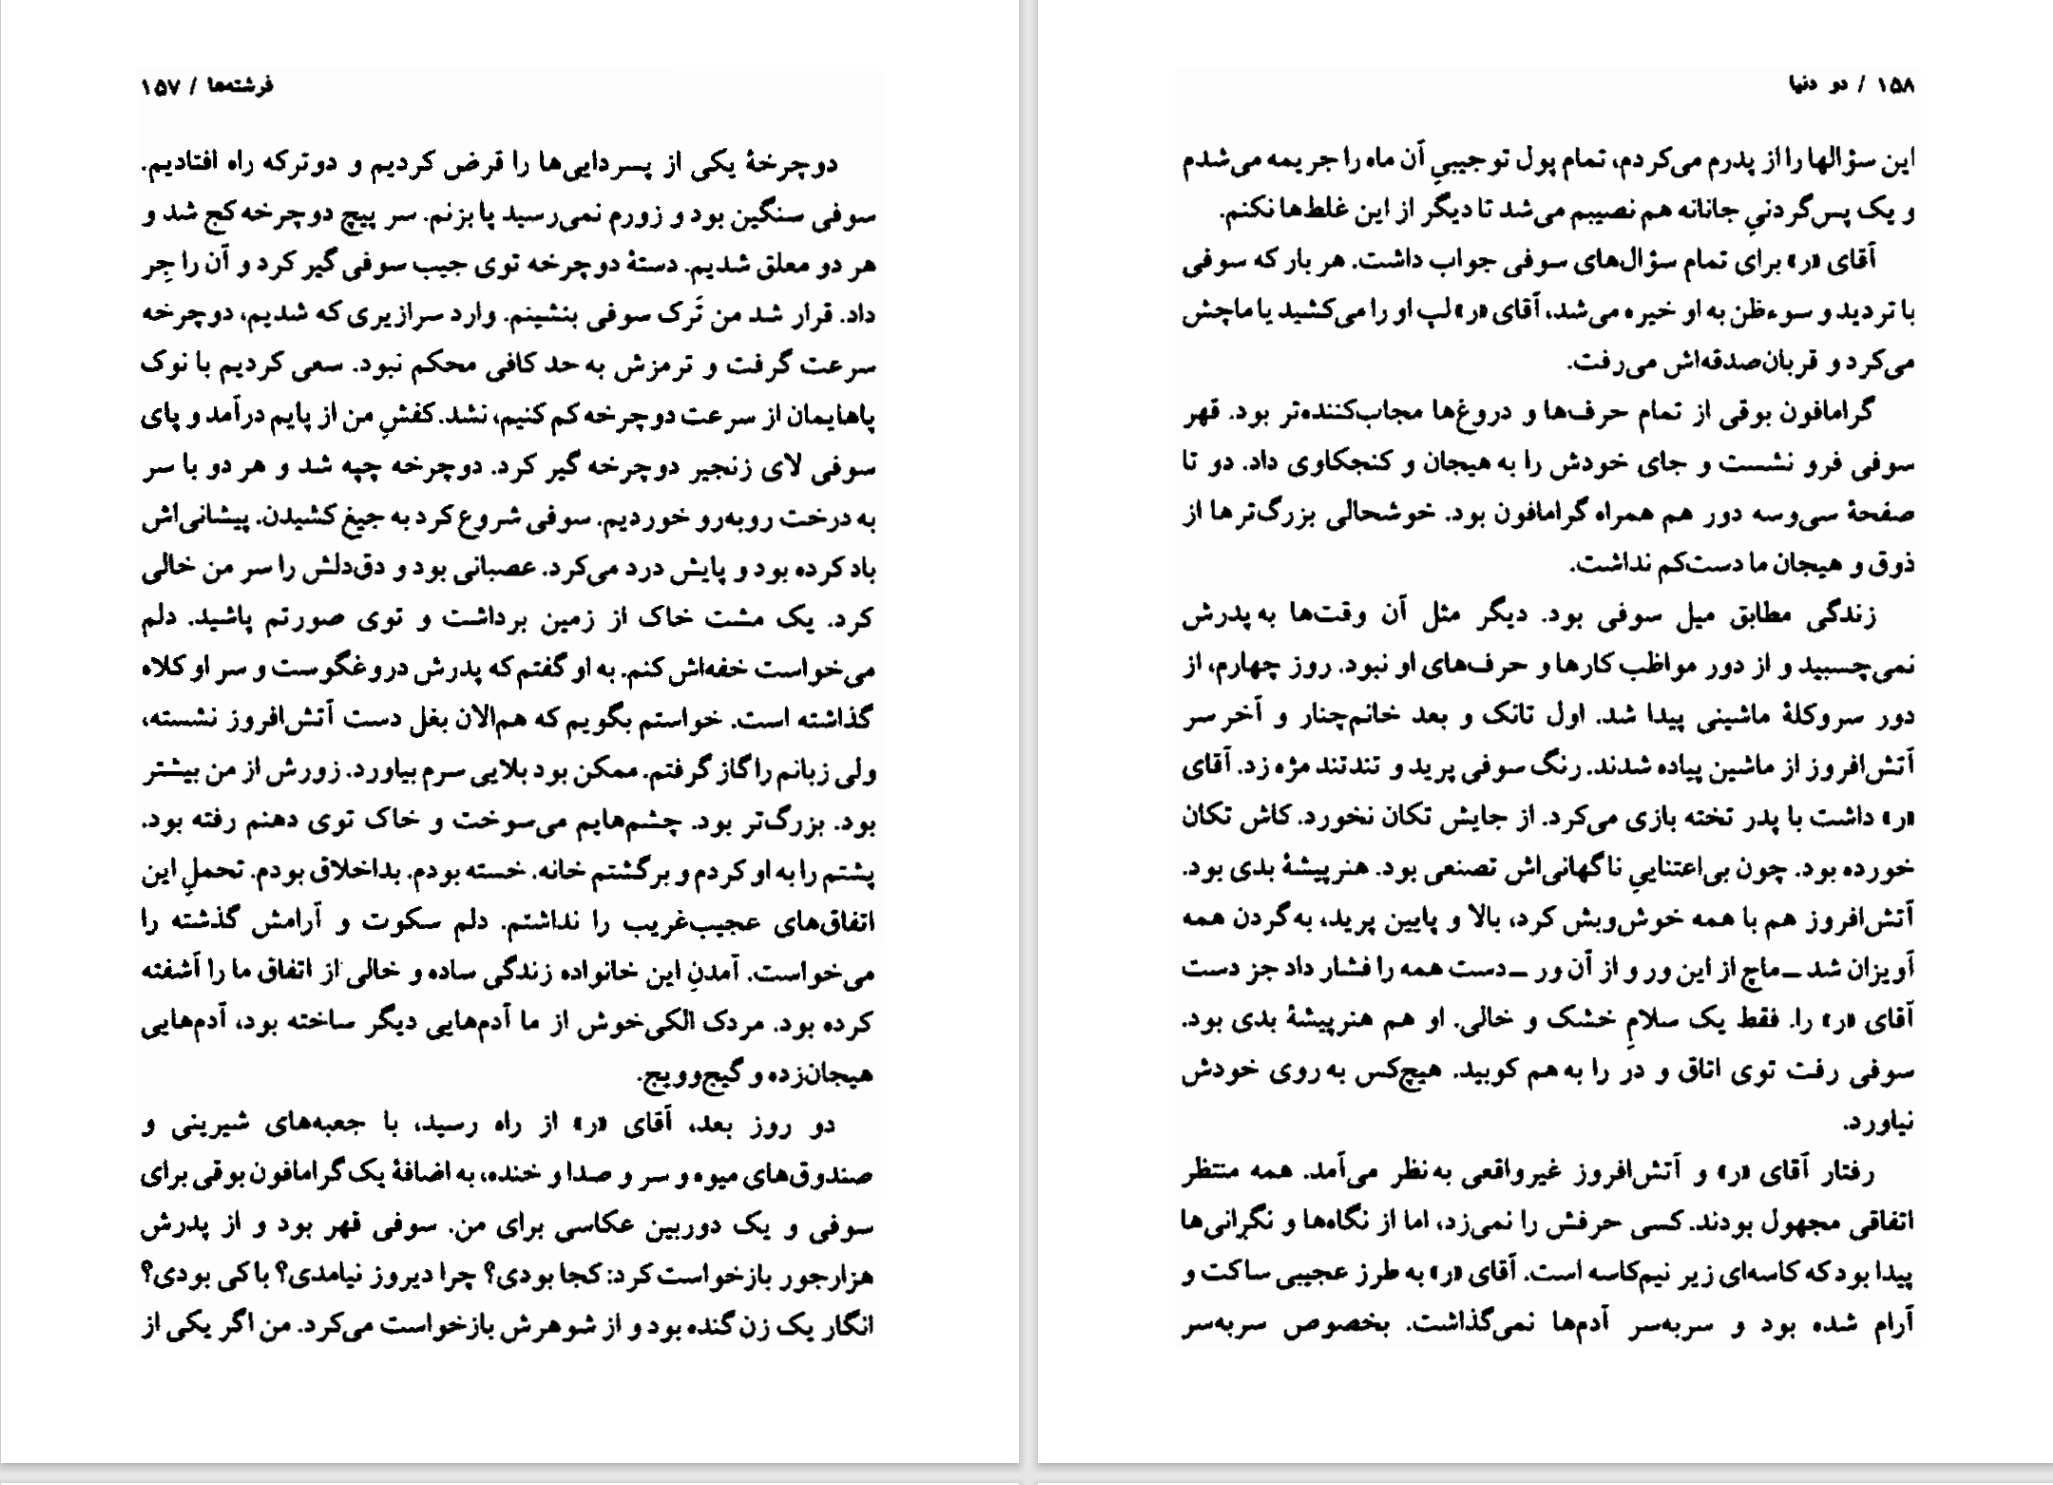 فرشته‌ها / ۱۵۷
دوچرخهٔ یکی از پسردایی‌ها را قرض کردیم و دوترکه راه افتادیم.
سوفی سنگین بود و زورم نمی‌رسید پا بزنم. سر پیچ دوچرخه کج شد و
هر دو معلق شدیم. دستهٔ دوچرخه توی جیب سوفی گیر کرد و آن را جِر
داد. قرار شد من تَرک سوفی بنشینم. وارد سرازیری که شدیم، دوچرخه
سرعت گرفت و ترمزش به حد کافی محکم نبود. سعی کردیم با نوک
پاهایمان از سرعت دوچرخه کم کنیم، نشد. کفشِ من از پایم درآمد و پای
سوفی لای زنجیر دوچرخه گیر کرد. دوچرخه چپه شد و هر دو با سر
به درخت روبه‌رو خوردیم. سوفی شروع کرد به جیغ کشیدن. پیشانی‌اش
باد کرده بود و پایش درد می‌کرد. عصبانی بود و دق‌دلش را سر من خالی
کرد. یک مشت خاک از زمین برداشت و توی صورتم پاشید. دلم
می‌خواست خفه‌اش کنم. به او گفتم که پدرش دروغگوست و سر او کلاه
گذاشته است. خواستم بگویم که هم‌الان بغل دست آتش‌افروز نشسته،
ولی زبانم را گاز گرفتم. ممکن بود بلایی سرم بیاورد. زورش از من بیشتر
بود. بزرگ‌تر بود. چشم‌هایم می‌سوخت و خاک توی دهنم رفته بود.
پشتم را به او کردم و برگشتم خانه. خسته بودم. بداخلاق بودم. تحملِ این
اتفاق‌های عجیب‌غریب را نداشتم. دلم سکوت و آرامش گذشته را
می‌خواست. آمدنِ این خانواده زندگی ساده و خالی از اتفاق ما را آشفته
کرده بود. مردک الکی‌خوش از ما آدم‌هایی دیگر ساخته بود، آدم‌هایی
هیجان‌زده و گیج‌وویج.
دو روز بعد، آقای «ر» از راه رسید، با جعبه‌های شیرینی و
صندوق‌های میوه و سر و صدا و خنده، به اضافهٔ یک گرامافون بوقی برای
سوفی و یک دوربین عکاسی برای من. سوفی قهر بود و از پدرش
هزارجور بازخواست کرد: کجا بودی؟ چرا دیروز نیامدی؟ با کی بودی؟
انگار یک زن گنده بود و از شوهرش بازخواست می‌کرد. من اگر یکی از
۱۵۸ / دو دنیا
این سؤالها را از پدرم می‌کردم، تمام پول توجیبیِ آن ماه را جریمه می‌شدم
و یک پس‌گردنیِ جانانه هم نصیبم می‌شد تا دیگر از این غلط‌ها نکنم.
آقای «ر» برای تمام سؤال‌های سوفی جواب داشت. هر بار که سوفی
با تردید و سوءظن به او خیره می‌شد، آقای «ر» لپ او را می‌کشید یا ماچش
می‌کرد و قربان‌صدقه‌اش می‌رفت.
گرامافون بوقی از تمام حرف‌ها و دروغ‌ها مجاب‌کننده‌تر بود. قهر
سوفی فرو نشست و جای خودش را به هیجان و کنجکاوی داد. دو تا
صفحهٔ سی‌وسه دور هم همراه گرامافون بود. خوشحالی بزرگ‌ترها از
ذوق و هیجان ما دست‌کم نداشت.
زندگی مطابق میل سوفی بود. دیگر مثل آن وقت‌ها به پدرش
نمی‌چسبید و از دور مواظب کارها و حرف‌های او نبود. روز چهارم، از
دور سروکلهٔ ماشینی پیدا شد. اول تانک و بعد خانم‌چنار و آخر سر
آتش‌افروز از ماشین پیاده شدند. رنگ سوفی پرید و تندتند مژه زد. آقای
«ر» داشت با پدر تخته بازی می‌کرد. از جایش تکان نخورد. کاش تکان
خورده بود. چون بی‌اعتناییِ ناگهانی‌اش تصنعی بود. هنرپیشهٔ بدی بود.
آتش‌افروز هم با همه خوش‌وبش کرد، بالا و پایین پرید، به گردن همه
آویزان شد ــ ماچ از این ور و از آن ور ــ دست همه را فشار داد جز دست
آقای «ر» را. فقط یک سلامِ خشک و خالی. او هم هنرپیشهٔ بدی بود.
سوفی رفت توی اتاق و در را به هم کوبید. هیچ‌کس به روی خودش
نیاورد.
رفتار آقای «ر» و آتش‌افروز غیرواقعی به نظر می‌آمد. همه منتظر
اتفاقی مجهول بودند. کسی حرفش را نمی‌زد، اما از نگاه‌ها و نگرانی‌ها
پیدا بود که کاسه‌ای زیر نیم‌کاسه است. آقای «ر» به طرز عجیبی ساکت و
آرام شده بود و سربه‌سر آدم‌ها نمی‌گذاشت. بخصوص سربه‌سر